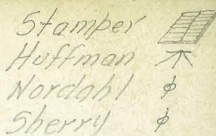 Stamper
Hoffman
Nordahl ϕ
Sherry ϕ